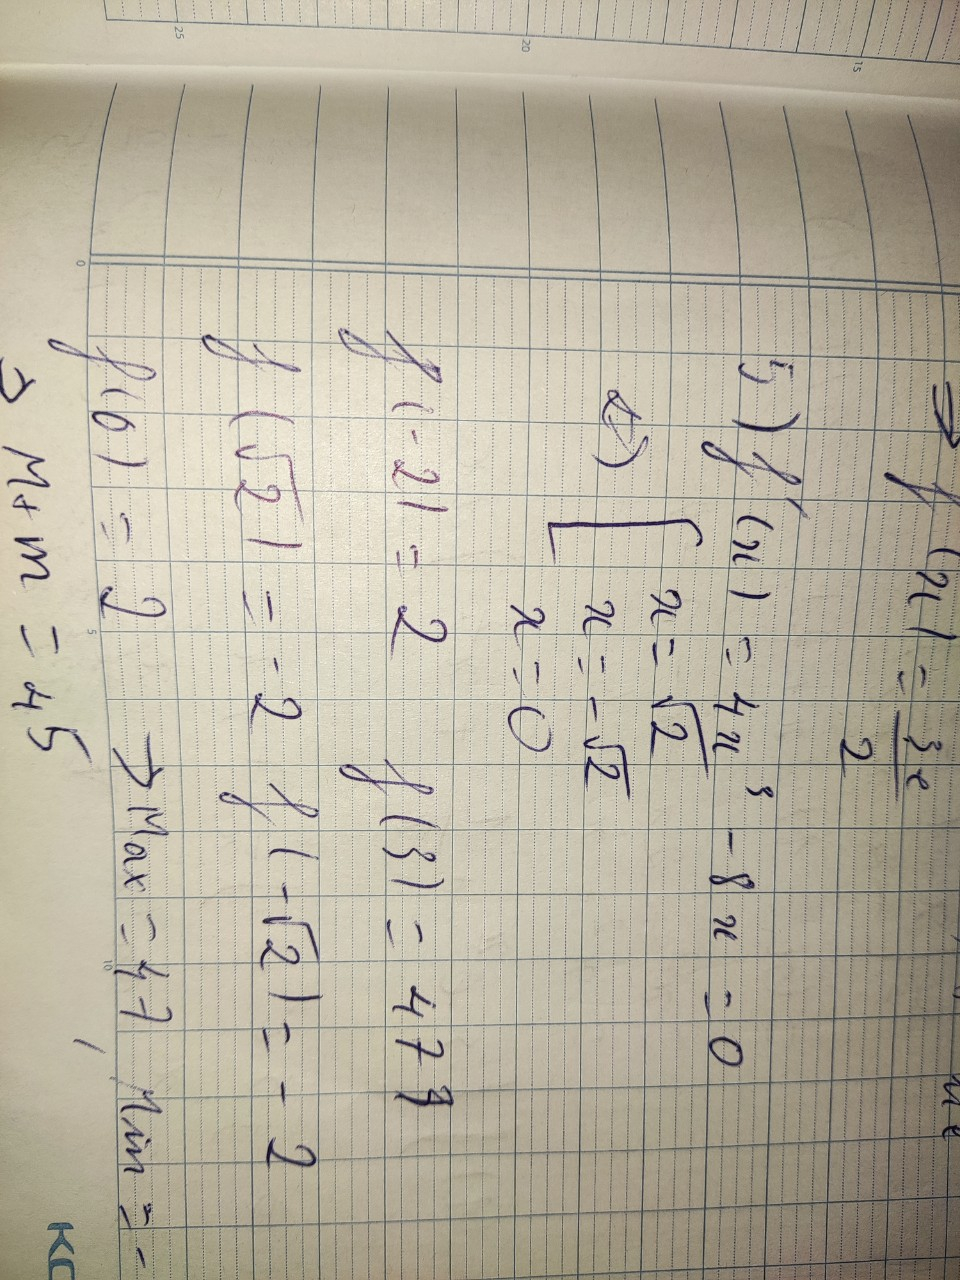 → f(x) = 3e
2
5) f'(x) = 4x³ - 8x = 0
⇔) [ x = √2
x = -√2
x = 0
f(-2) = 2 f(3) = 47
f(√2) = -2 f(-√2) = -2
f(0) = 2 → Max = 47, Min = -
→ M+m = 45
0 5 10
15 20 25
KC